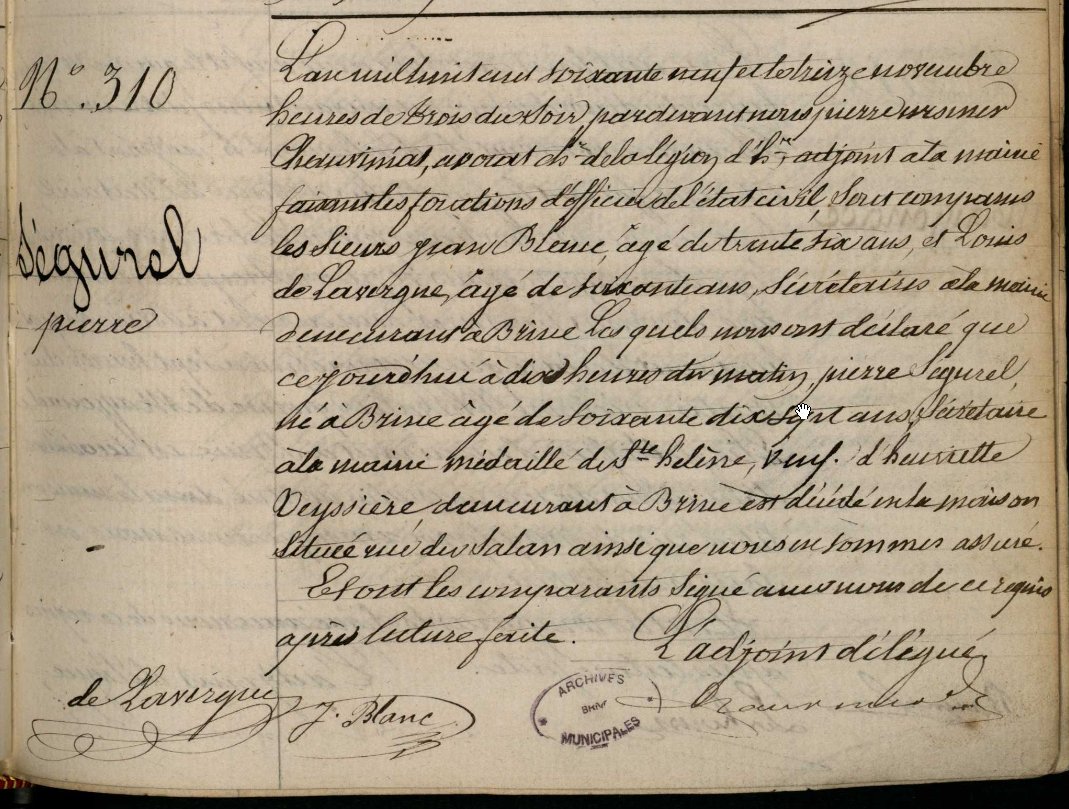 N°. 310
Ségurel
pierre
L'an mil huit cent soixante neuf et le treize novembre
heures de trois du soir pardevant nous pierre ursmer
Chauviniat, avocat ch.er de la légion d'h.r adjoint a la mairie
faisant les fonctions d'officier de l'état civil, sont comparus
les sieurs jean Blanc, âgé de trente six ans, et Louis
de Lavergne, âgé de soixante ans, Sécrétaires a la mairie
demeurant à Brive Les quels nous ont déclaré que
ce jourd'hui à dix heures du matin, pierre Ségurel,
né à Brive âgé de soixante dix sept ans, Sécrétaire
a la mairie médaillé de S.te hélène, veuf. d'henriette
Veyssière demeurant à Brive est décédé en la maison
située rue du Salan ainsi que nous en sommes assuré.
Et ont les comparants signé avec nous de ce requis
après lecture faite.
L'adjoint délégué
de Lavergne
J. Blanc
ARCHIVES
BRIVE
MUNICIPALES